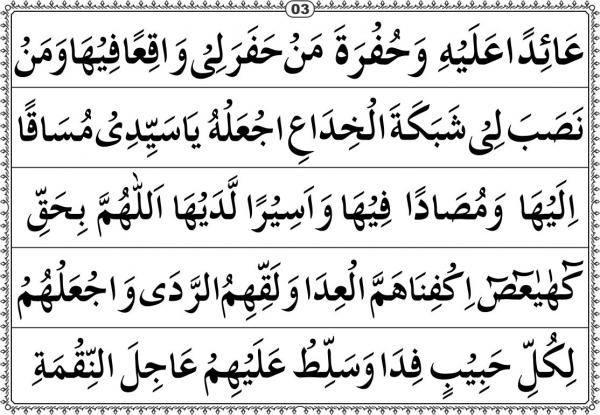 03
عَائِدًا عَلَيْهِ وَحُفْرَةَ مَنْ حَفَرَ لِيْ وَاقِعًا فِيْهَا وَمَنْ
نَصَبَ لِيْ شَبَكَةَ الْخِدَاعِ اجْعَلْهُ يَا سَيِّدِيْ مُسَاقًا
اِلَيْهَا وَمُصَادًا فِيْهَا وَاَسِيْرًا لَّدَيْهَا اَللّٰهُمَّ بِحَقِّ
كٓهٰيٰعٓصٓ اِكْفِنَا هَمَّ الْعِدَا وَلَقِّهِمُ الرَّدَى وَاجْعَلْهُمْ
لِكُلِّ حَبِيْبٍ فِدَا وَسَلِّطْ عَلَيْهِمْ عَاجِلَ النِّقْمَةِ